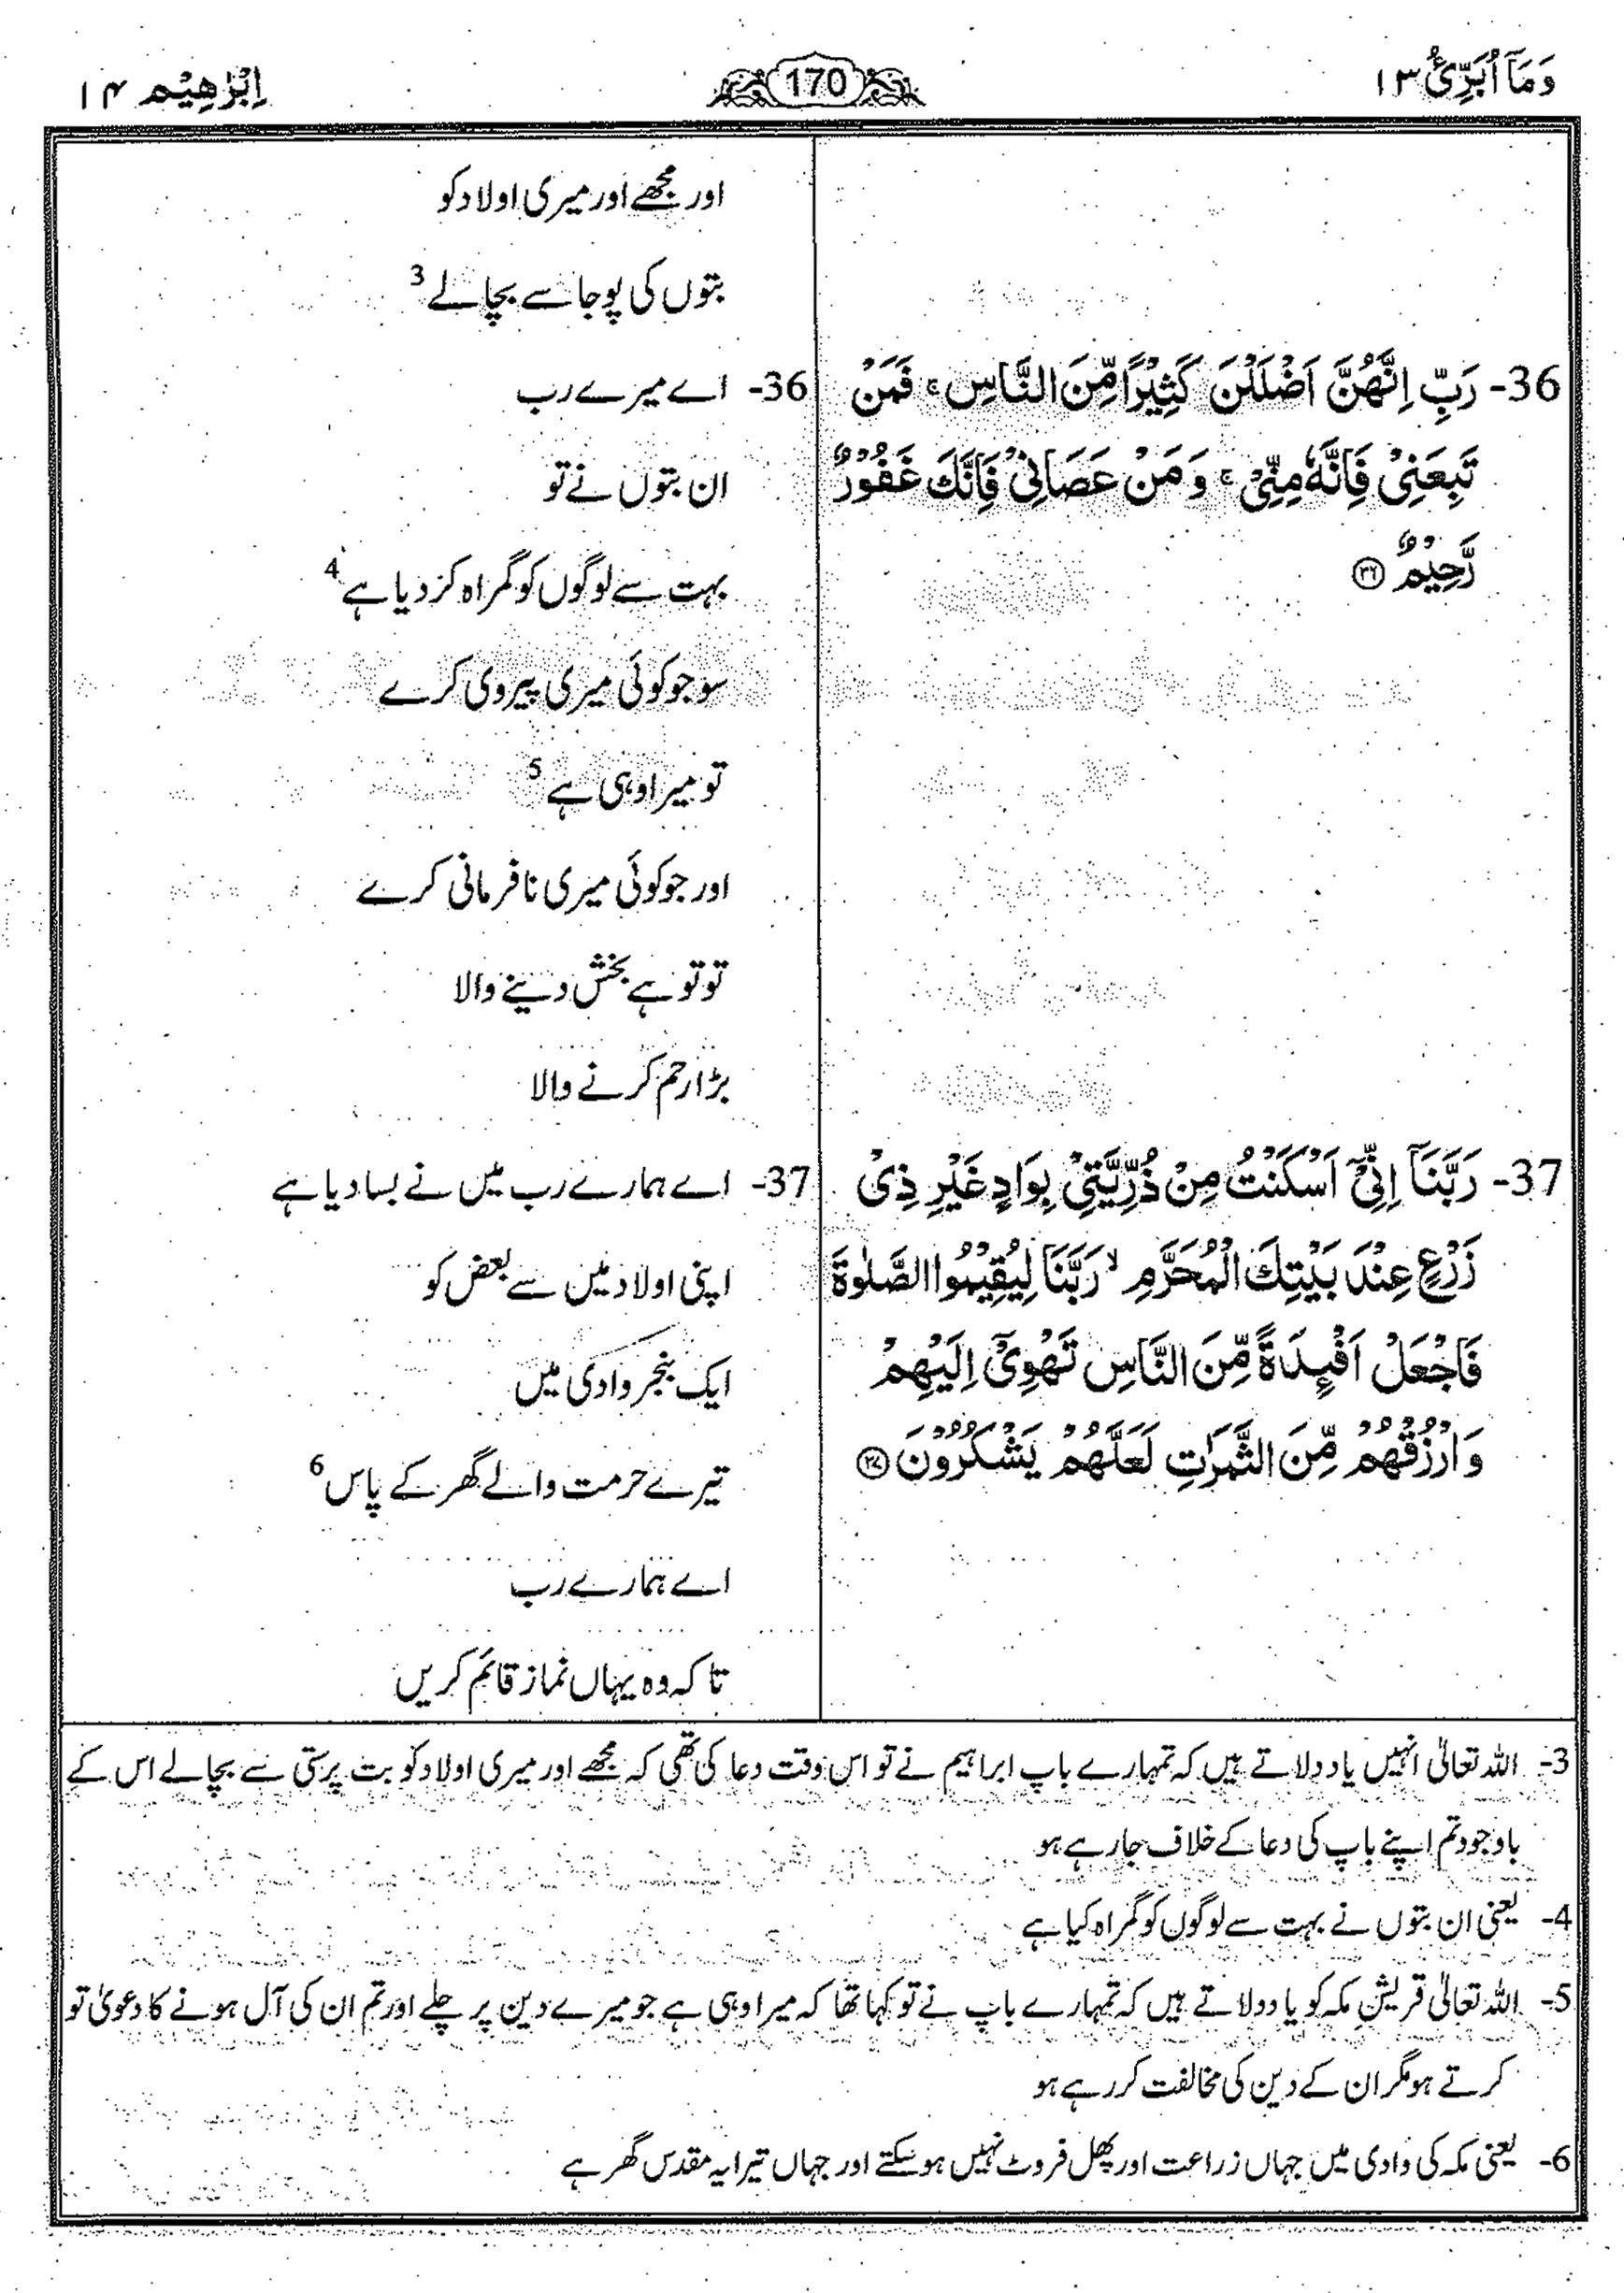 وَمَآ اُبَرِّئُ ١٣
170
اِبْرٰهِيْم ١٤
36- رَبِّ اِنَّهُنَّ اَضْلَلْنَ كَثِيْرًا مِّنَ النَّاسِ ۚ فَمَنْ
تَبِعَنِيْ فَاِنَّهٗ مِنِّيْ ۚ وَمَنْ عَصَانِيْ فَاِنَّكَ غَفُوْرٌ
رَّحِيْمٌ ۝٣٦
37- رَبَّنَآ اِنِّيْٓ اَسْكَنْتُ مِنْ ذُرِّيَّتِيْ بِوَادٍ غَيْرِ ذِيْ
زَرْعٍ عِنْدَ بَيْتِكَ الْمُحَرَّمِ ۙ رَبَّنَا لِيُقِيْمُوا الصَّلٰوةَ
فَاجْعَلْ اَفْـِٕدَةً مِّنَ النَّاسِ تَهْوِيْٓ اِلَيْهِمْ
وَارْزُقْهُمْ مِّنَ الثَّمَرٰتِ لَعَلَّهُمْ يَشْكُرُوْنَ ۝٣٧
اور مجھے اور میری اولاد کو
بتوں کی پوجا سے بچا لے 3
36- اے میرے رب
ان بتوں نے تو
بہت سے لوگوں کو گمراہ کر دیا ہے 4
سو جو کوئی میری پیروی کرے
تو میرا وہی ہے 5
اور جو کوئی میری نافرمانی کرے
تو تو ہے بخش دینے والا
بڑا رحم کرنے والا
37- اے ہمارے رب میں نے بسا دیا ہے
اپنی اولاد میں سے بعض کو
ایک بنجر وادی میں
تیرے حرمت والے گھر کے پاس 6
اے ہمارے رب
تا کہ وہ یہاں نماز قائم کریں
3- اللہ تعالیٰ انہیں یاد دلاتے ہیں کہ تمہارے باپ ابراہیم نے تو اس وقت دعا کی تھی کہ مجھے اور میری اولاد کو بت پرستی سے بچا لے اس کے
باوجود تم اپنے باپ کی دعا کے خلاف جا رہے ہو
4- یعنی ان بتوں نے بہت سے لوگوں کو گمراہ کیا ہے
5- اللہ تعالیٰ قریشِ مکہ کو یاد دلاتے ہیں کہ تمہارے باپ نے تو کہا تھا کہ میرا وہی ہے جو میرے دین پر چلے اور تم ان کی آل ہونے کا دعویٰ تو
کرتے ہو مگر ان کے دین کی مخالفت کر رہے ہو
6- یعنی مکہ کی وادی میں جہاں زراعت اور پھل فروٹ نہیں ہو سکتے اور جہاں تیرا یہ مقدس گھر ہے